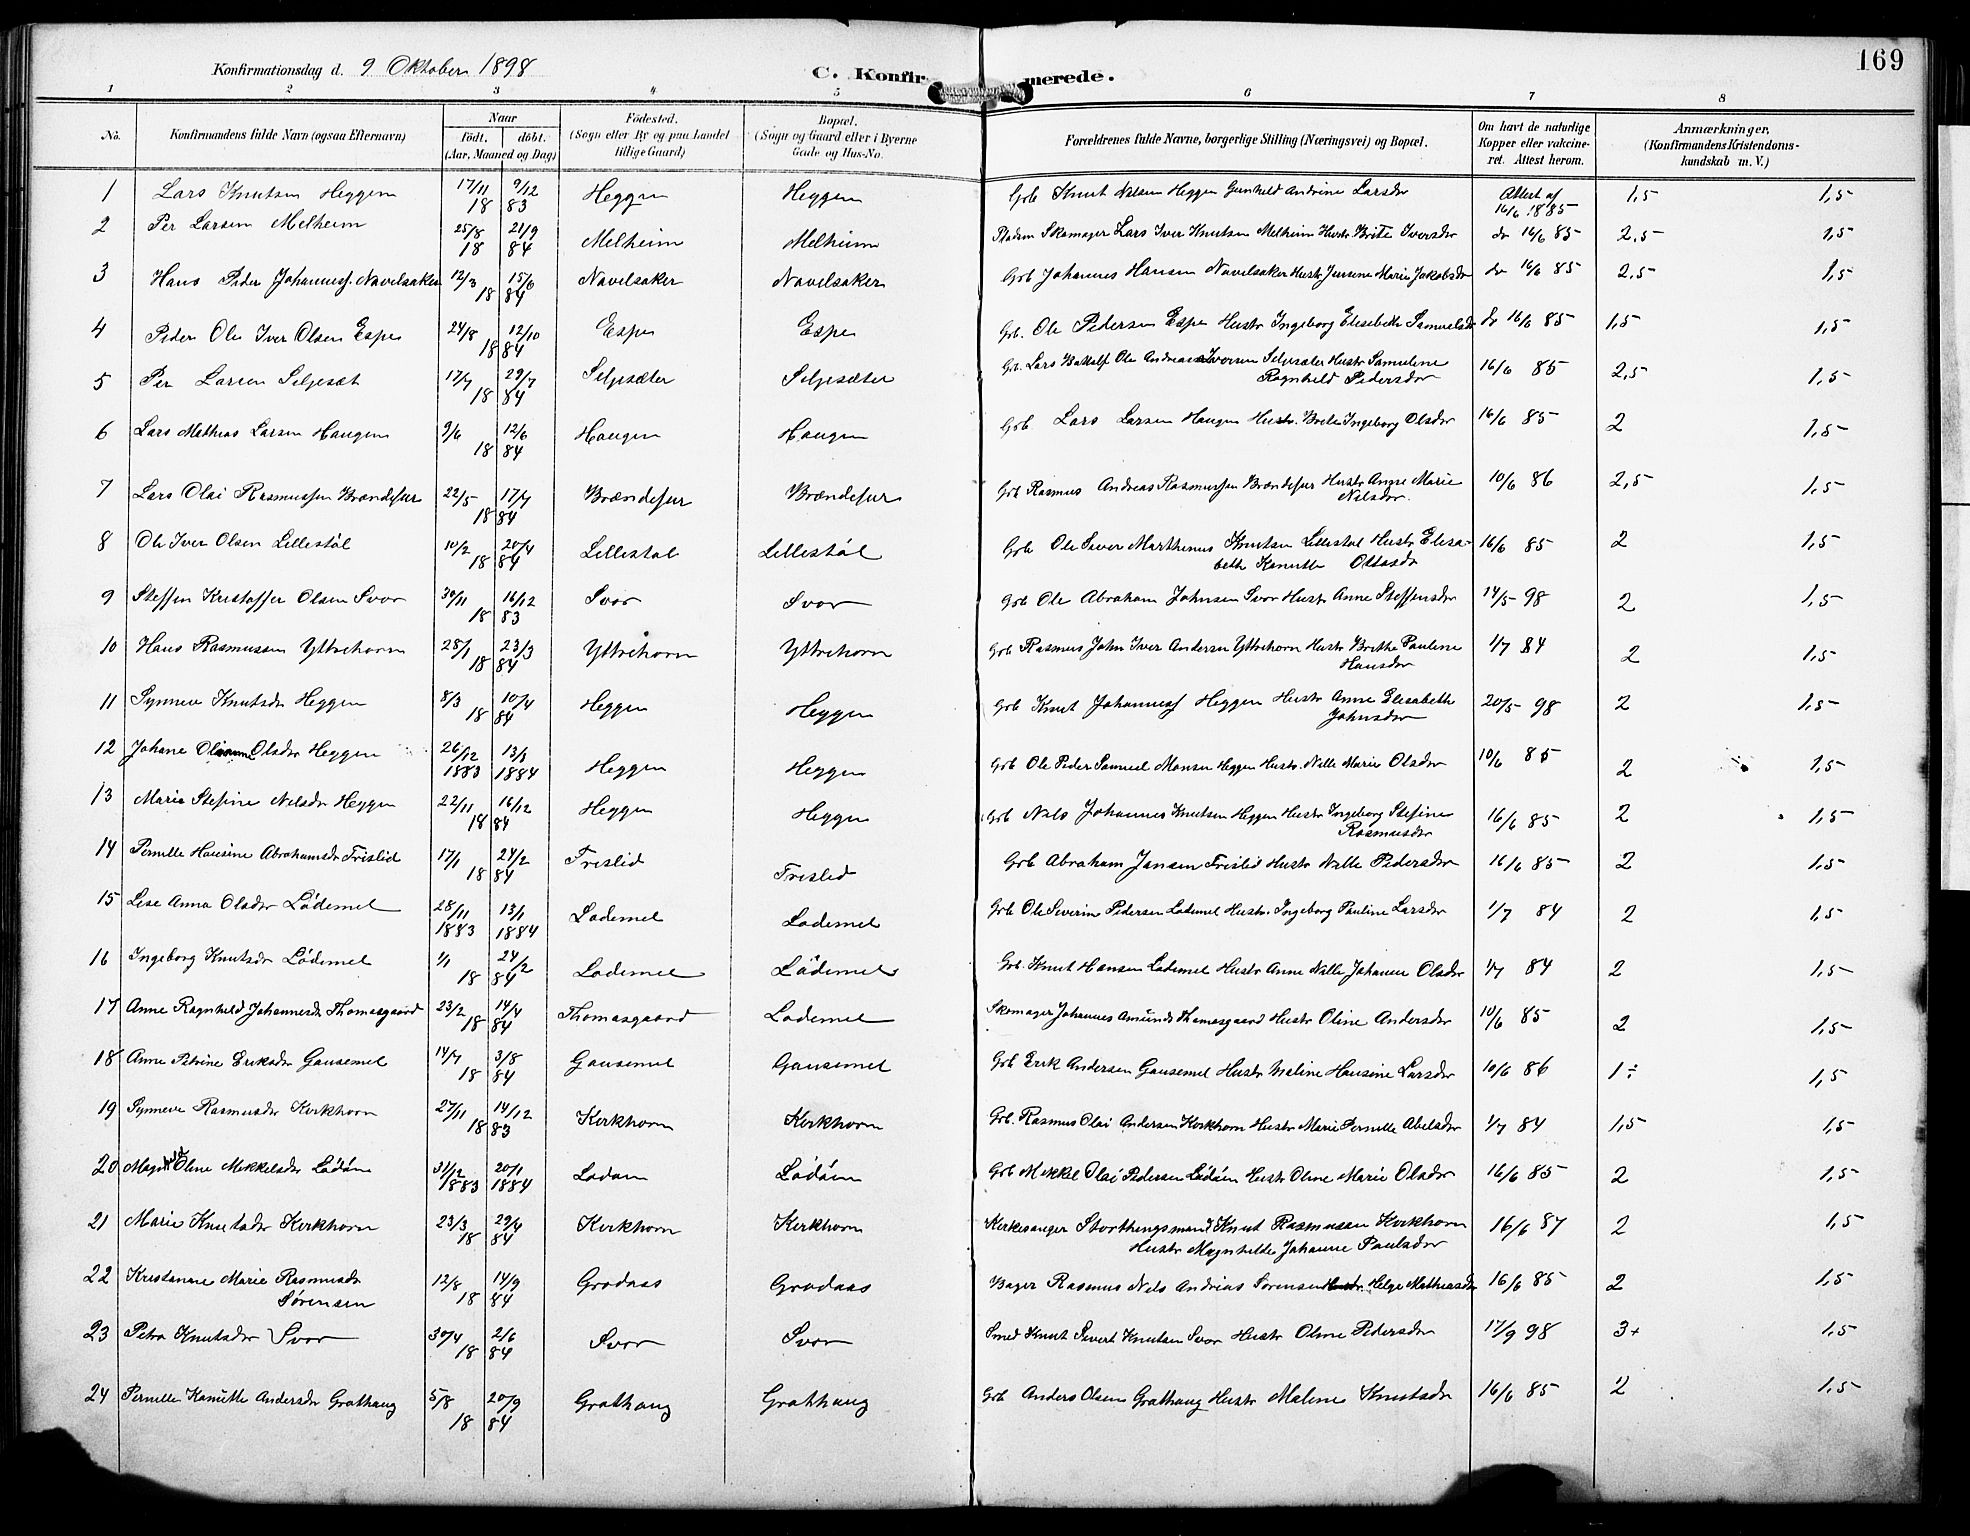 169
Konfirmationsdag d. 9 Oktober 1898
C. Konfirmerede.
1 2 3 4 5 6 7 8
No. Konfirmandens fulde Navn (ogsaa Efternavn) Naar født. døbt. (Aar, Maaned og Dag) Fødested. (Sogn eller By og paa Landet tillige Gaard) Bopæl. (Sogn og Gaard eller i Byerne Gade og Hus-No. Forældrenes fulde Navne, borgerlige Stilling (Næringsvei) og Bopæl. Om havt de naturlige Kopper eller vakcineret. Attest herom. Anmærkninger, (Konfirmandens Kristendomskundskab m. V.)
1 Lars Knutsen Heggen 17/11 9/12 18 83 Heggen Heggen Grb Knut Nilsen Heggen Gunhild Andrine Larsdr Attest af 16/6 1885 1,5 1,5
2 Per Larsen Melheim 25/8 21/9 18 84 Melheim Melheim Pladsm Skomager Lars Iver Knutsen Melheim Hustr. Brite Iversdr do 16/6 85 2.5 1,5
3 Hans Peder Johanness. Navelsaker 12/3 15/6 18 84 Navelsaker Navelsaker Grb Johannes Hansen Navelsaker Hustr Jensine Marie Jakobsdr do 16/6 85 2.5 1,5
4 Peder Ole Iver Olsen Espe 24/8 12/10 18 84 Espe Espe Grb. Ole Pedersen Espe Hustr Ingeborg Elisebeth Samuelsdr do 16/6 85 1,5 1,5
5 Per Larsen Seljesæt 17/7 29/7 18 84 Seljesæter Seljesæter Grb. Lars Ole Andreas Iversen Seljesæter Hustr Samuline Ragnhild Pedersdr 16/6 85 2,5 1,5
6 Lars Mathias Larsen Haugen 9/6 12/6 18 84 Haugen Haugen Grb Lars Larsen Haugen Hustr. Brite Ingeborg Olsdr 16/6 85 2 1,5
7 Lars Olai Rasmussen Brændefur 22/5 17/7 18 84 Brændefur Brændefur Grb Rasmus Andreas Rasmussen Brændefur Hustr Anne Marie Nilsdr. 10/6 86 2,5 1,5
8 Ole Iver Olsen Lillestøl 10/2 20/4 18 84 Lillestøl Lillestøl Grb Ole Siver Marthinus Knutsen Lillestøl Hustr Elisabeth Kanutte Ottosdr 16/6 85 2 1,5
9 Steffen Kristoffer Olsen Svor 30/11 16/12 18 83 Svor Svor Grb Ole Abraham Johnsen Svor Hustr Anne Steffensdr 14/5 98 2 1,5
10 Hans Rasmussen Yttrehorn 28/1 23/3 18 84 Yttrehorn Yttrehorn Grb Rasmus John Iver Andersen Yttrehorn Hustr Brithe Pauline Hansdr 1/7 84 2 1,5
11 Synneve Knutsdr Heggen 8/3 10/4 18 84 Heggen Heggen Grb Knut Johanness Heggen Hustr Anne Elisabeth Johnsdr 20/5 98 2 1,5
12 Johane Olianne Olsdr Heggen 26/12 1883 13/1 1884 Heggen Heggen Grb Ole Peder Samuel Monsen Heggen Hustr. Nille Marie Olsdr 10/6 85 2 1,5
13 Marie Stefine Nilsdr Heggen 22/11 16/12 18 84 Heggen Heggen Grb Nils Johannes Knutsen Heggen Hustr Ingeborg Stefine Rasmusdr 16/6 85 2 1,5
14 Pernille Hansine Abrahamsdr Frislid 17/1 24/2 18 84 Frislid Frislid Grb Abraham Jansen Frislid Hustr Nille Pedersdr 16/6 85 2 1,5
15 Lise Anna Olsdr Lødemel 28/11 1883 13/1 1884 Lødemel Lødemel Grb Ole Severin Pedersen Lødemel Hustr. Ingeborg Pauline Larsdr 1/7 84 2 1,5
16 Ingeborg Knutsdr Lødemel 1/1 24/2 18 84 Lødemel Lødemel Grb. Knut Hansen Lødemel Hustr Anne Nille Johanne Olsdr 1/7 84 2 1,5
17 Anne Ragnhild Johannesdr Thomasgaard 23/2 14/4 18 84 Thomasgaard Lødemel Skomager Johannes Amunds Thomasgaard Hustr Oline Andersdr 10/6 85 2 1,5
18 Anne Petrine Eriksdr Gausemel 14/7 3/8 18 84 Gausemel Gausemel Grb Erik Andersen Gausemel Hustr Maline Hansine Larsdr 10/6 86 1÷ 1,5
19 Synneve Rasmusdr Kirkhorn 27/11 14/12 18 83 Kirkhorn Kirkhorn Grb. Rasmus Olai Andersen Kirkhorn Hustr Marie Pernille Abelsdr 1/7 84 1,5 1,5
20 Magnhild Oline Mikkelsdr Lødøen 31/12 1883 20/1 1884 Lødøen Lødøen Grb Mikkel Olai Pedersen Lødøen Hustr Oline Marie Olsdr 16/6 85 2 1,5
21 Marie Knutsdr Kirkhorn 23/3 29/4 18 84 Kirkhorn Kirkhorn Kirkesanger Storthingsmand Knut Rasmussen Kirkhorn Hustr Magnhilde Johanne Paulsdr 16/6 87 2 1,5
22 Kristianne Marie Rasmusdr Sørensen 12/8 14/9 18 84 Grodaas Grodaas Bager Rasmus Nils Andrias Sørensen Hustr. Helge Mathiasdr 16/6 85 2 1,5
23 Petra Knutsdr Svor 30/4 2/6 18 84 Svor Svor Smed Knut Sivert Knutsen Svor Hustr Oline Pedersdr 17/9 98 3+ 1,5
24 Pernille Kanutte Andersdr Grøthaug 5/8 20/9 18 84 Grøthaug Grøthaug Grb Anders Olsen Grøthaug Hustr Maline Knutsdr 16/6 85 2 1,5